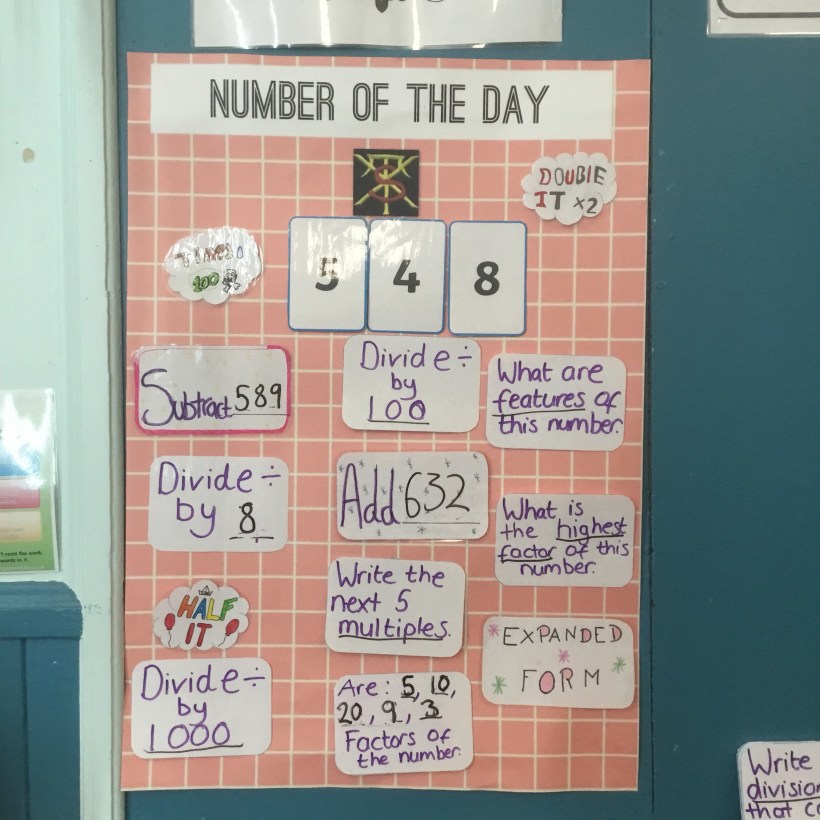 NUMBER OF THE DAY
DOUBLE
IT ×2
TIMES
100
5 4 8
Subtract 589
Divide ÷
by
100
What are
features of
this number.
Divide ÷
by 8
Add 632
What is
the highest
factor of this
number.
HALF
IT
Write the
next 5
multiples.
EXPANDED
FORM
Divide ÷
by
1000
Are: 5, 10,
20, 9, 3
Factors of
the number.
Write
that